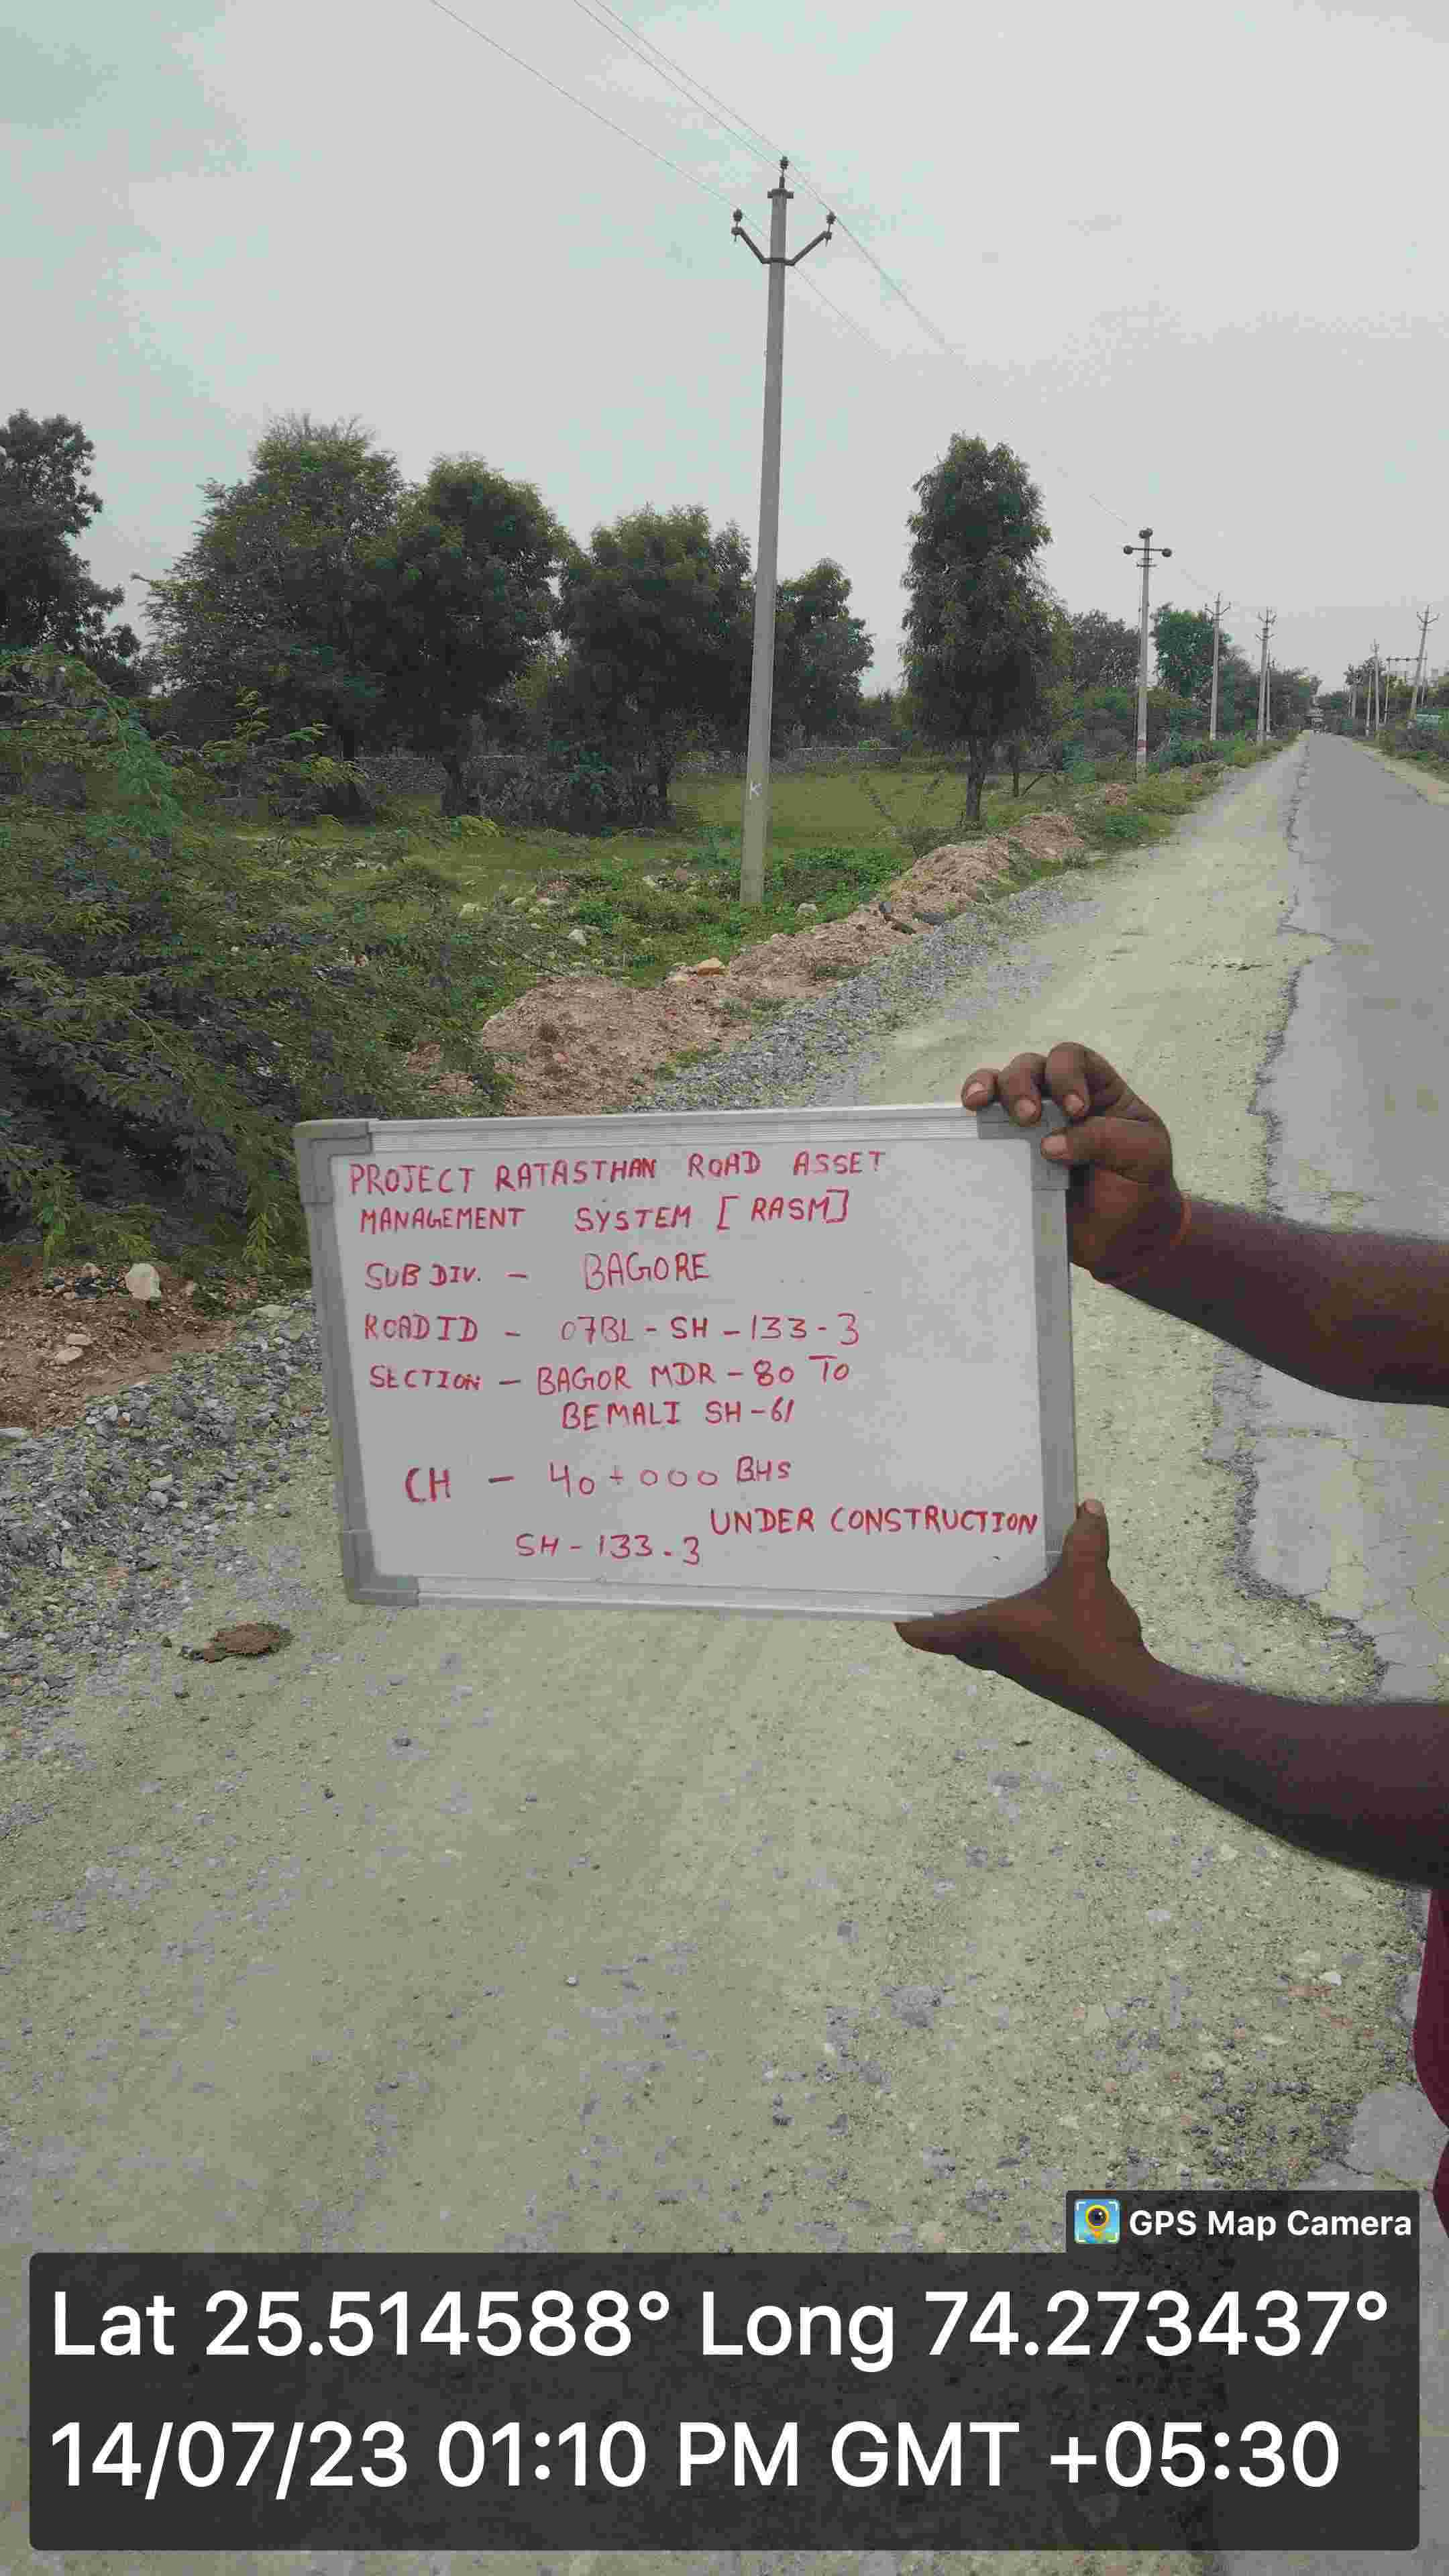 K
PROJECT RAJASTHAN ROAD ASSET
MANAGEMENT SYSTEM [RASM]
SUB DIV. - BAGORE
ROAD ID - 07BL-SH-133-3
SECTION - BAGOR MDR-80 TO
BEMALI SH-61
CH - 40+000 BHS
UNDER CONSTRUCTION
SH-133-3
GPS Map Camera
Lat 25.514588° Long 74.273437°
14/07/23 01:10 PM GMT +05:30